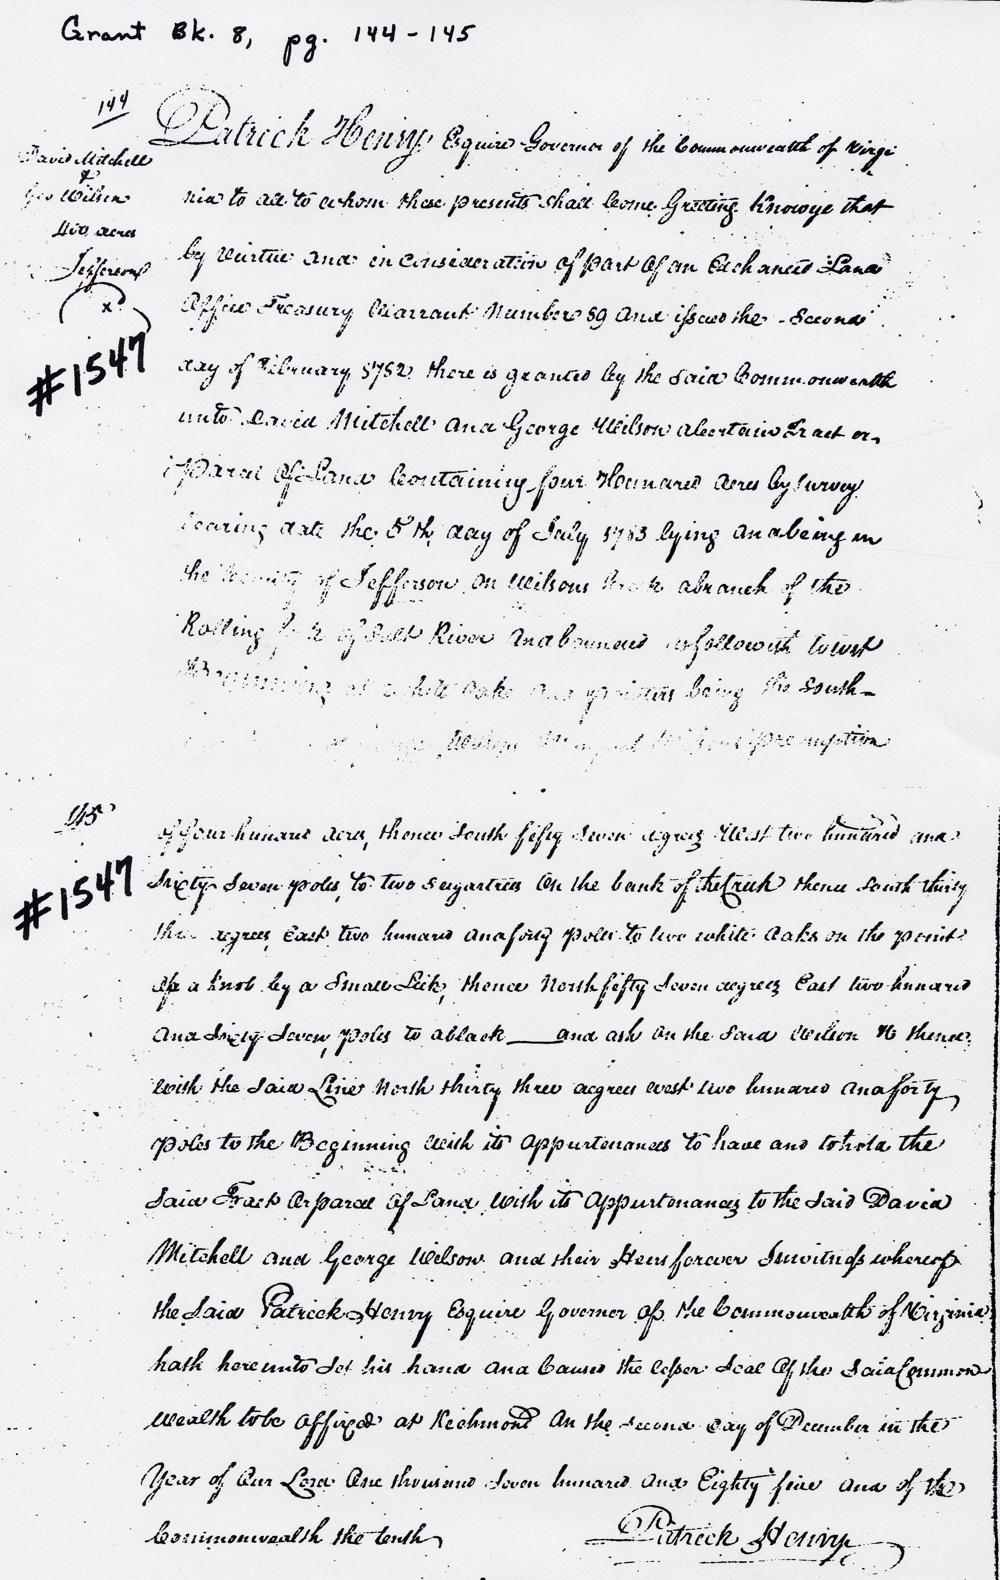 Grant Bk. 8, pg. 144-145
144
David Mitchell
&
Geo Wilson
400 acres
Jefferson
x
#1547
Patrick Henry Esquire Governor of the Commonwealth of Virgi
nia to all to whom these presents shall Come Greeting Know ye that
by Virtue and in Consideration of part of an Exchanged Land
Office Treasury Warrant Number 59 and issued the Second
day of February 1782 there is granted by the said Commonwealth
unto David Mitchell and George Wilson a certain Tract or
Parcel of Land Containing four Hundred acres by survey
bearing date the 5th day of July 1783 lying and being in
the County of Jefferson on Wilsons Creek a branch of the
Rolling fork of Salt River and bounded as followeth to wit
Beginning at white oake and being the South
Wilson preemption
145
#1547
of four hundred acres, thence South fifty Seven degrees West two hundred and
Sixty Seven poles, to two sugartrees on the bank of the Creek thence South thirty
three degrees East two hundred and forty poles to two white Oaks on the point
of a knob by a Small Lick, thence North fifty Seven degrees East two hundred
and Sixty Seven, poles to a black ___ and ash on the said Wilson thence
with the said Line North thirty three degrees west two hundred and forty
poles to the Beginning with its appurtenances to have and to hold the
said Tract or parcel of Land with its Appurtenances to the said David
Mitchell and George Wilson and their Heirs forever In witness whereof
the said Patrick Henry Esquire Governor of the Commonwealth of Virginia
hath hereunto Set his hand and Caused the lesser Seal of the said Common
wealth to be affixed at Richmond on the second day of December in the
Year of Our Lord One thousand Seven hundred and Eighty five and of the
Commonwealth the tenth
Patrick Henry